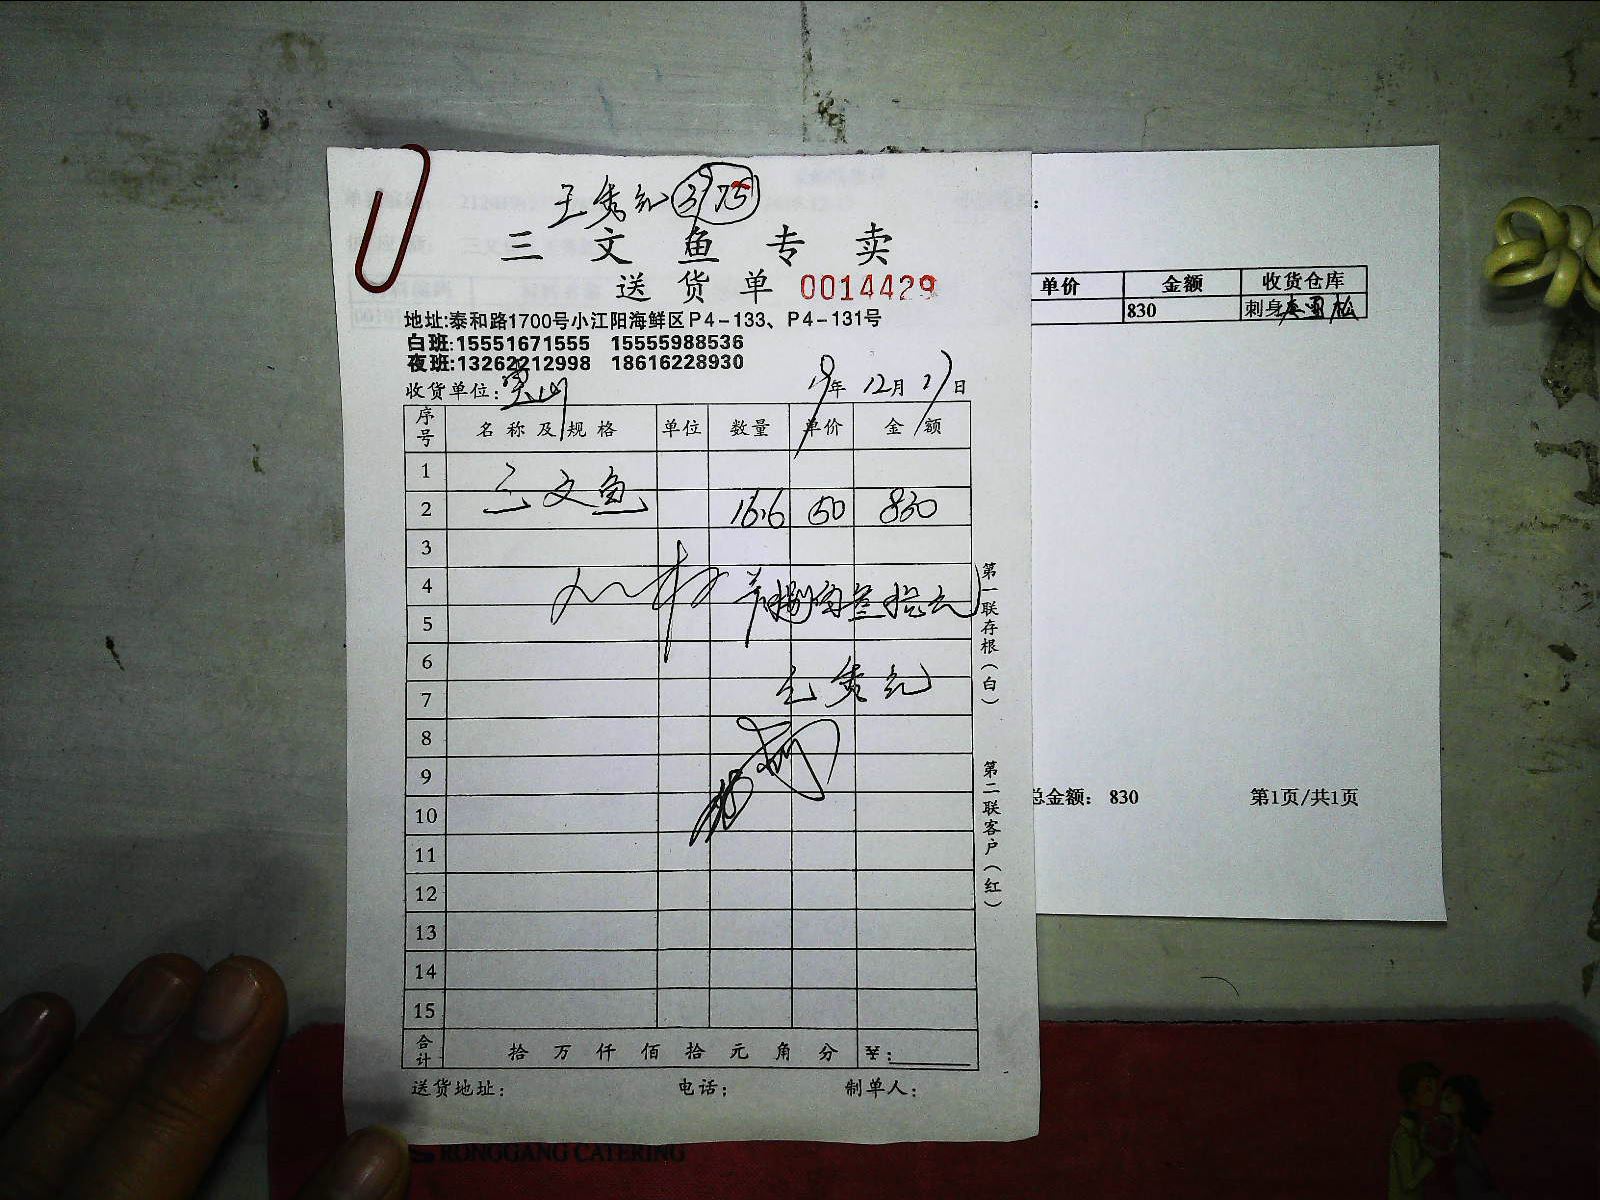 王秀纪 375
三文鱼专卖
送货单 0014429
地址:泰和路1700号小江阳海鲜区P4-133、P4-131号
白班:15551671555 15555988536
夜班:13262212998 18616228930
收货单位:宝山 19年 12月 17日
序号 名称及规格 单位 数量 单价 金额
1 三文鱼
2 16.6 50 830
3
4
捌佰叁拾元
5
6
7 王秀纪
8
9
10
11
12
13
14
15
合计 拾 万 仟 佰 拾 元 角 分 ¥:
送货地址: 电话: 制单人:
第一联存根(白)
第二联客户(红)
单价 金额 收货仓库
830 刺身
总金额: 830 第1页/共1页
RONGGANG CATERING